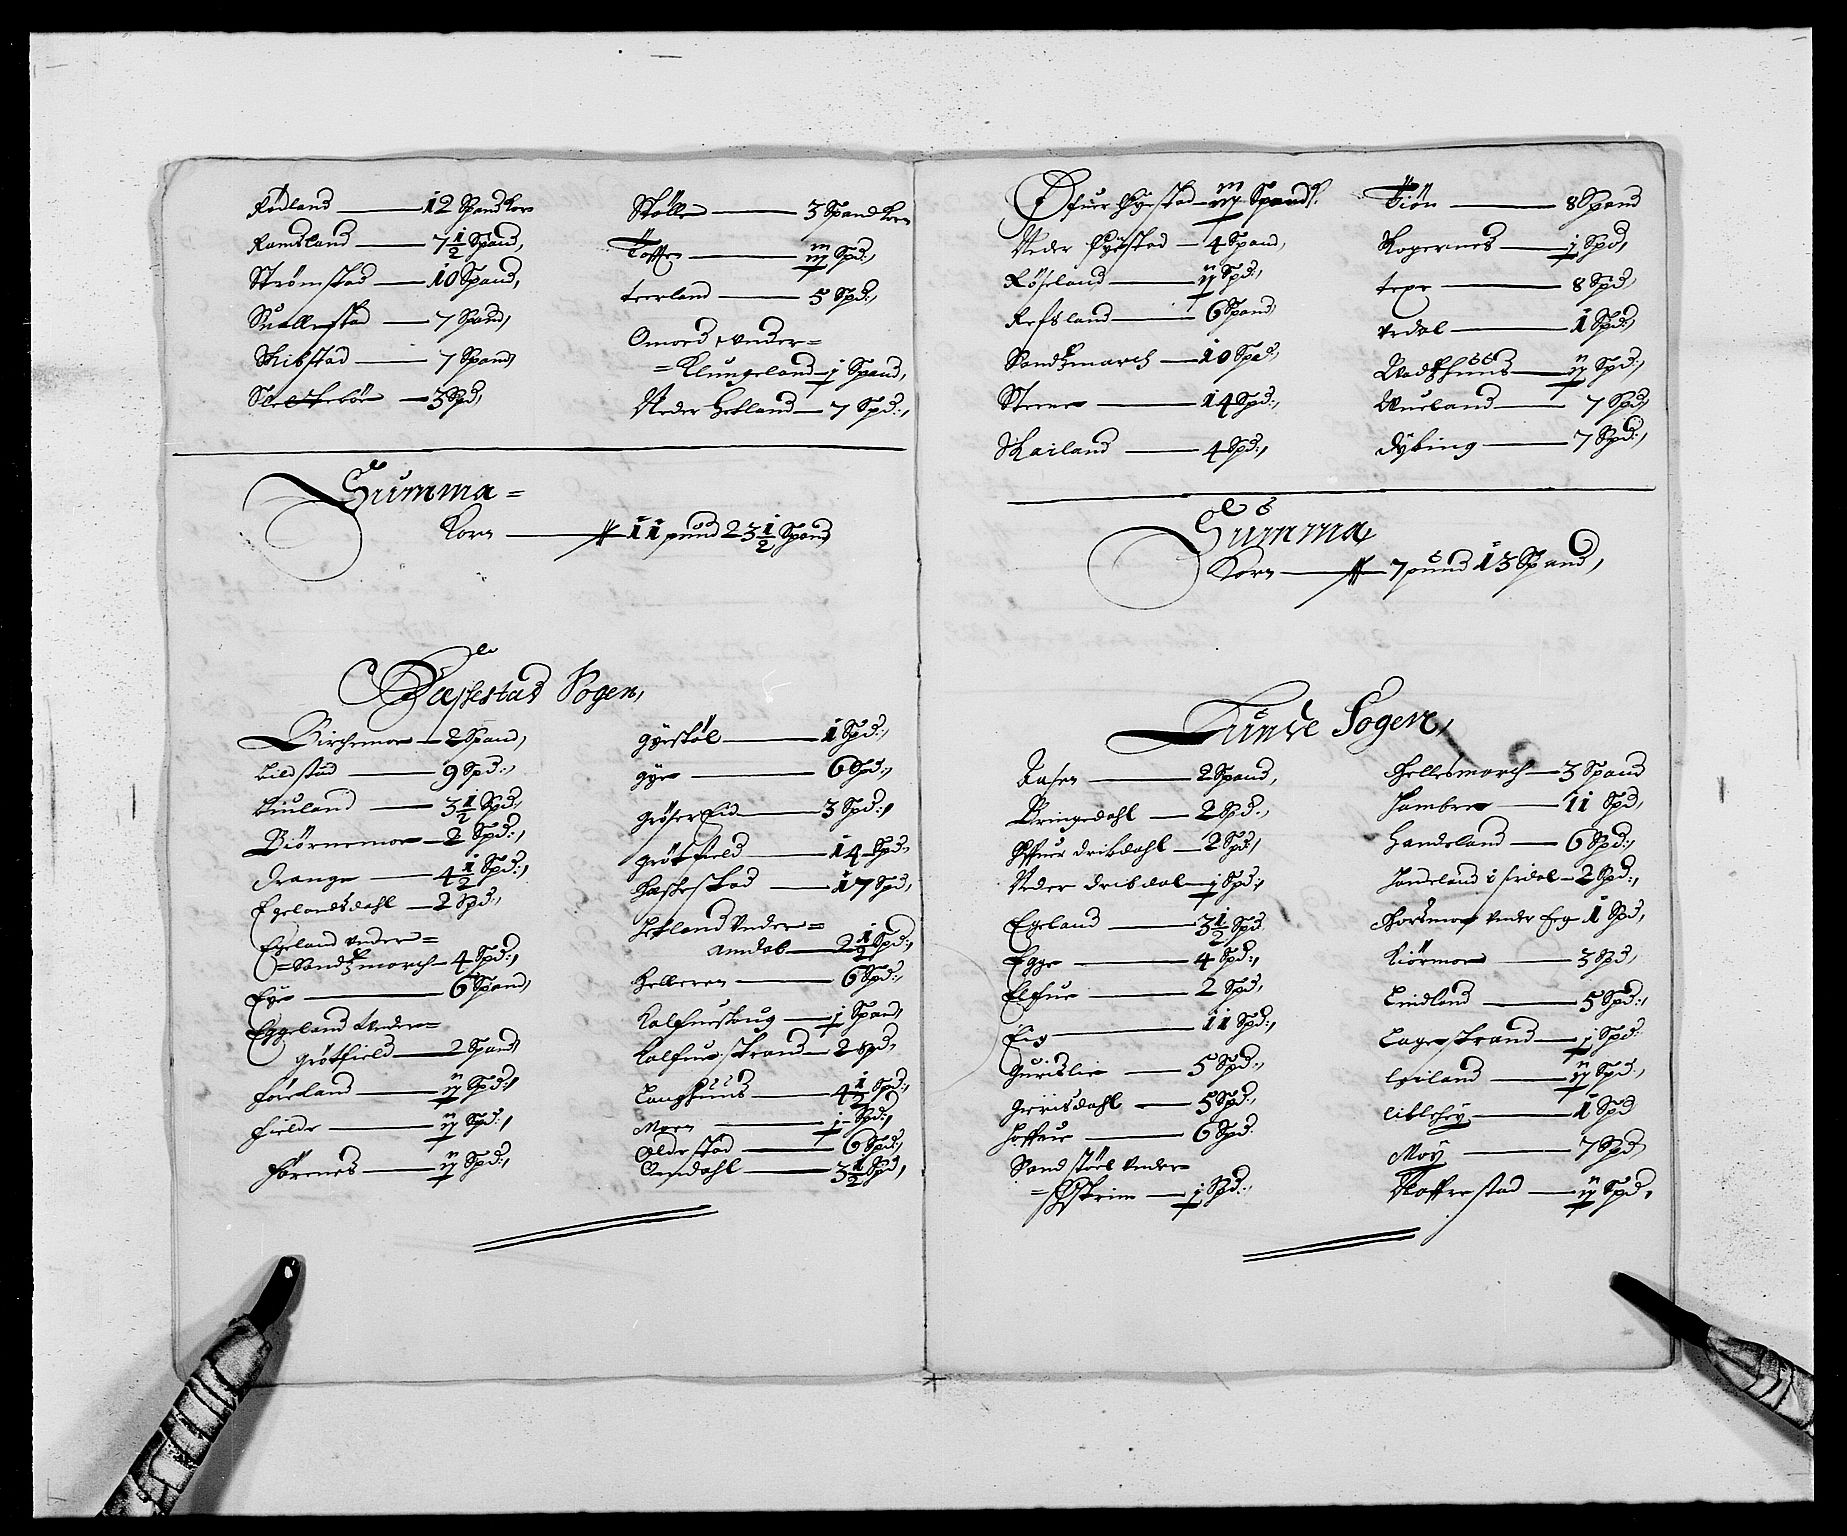 Rødland — 12 Spand Korn
Ramsland — 7½ Spand,
Strømstad — 10 Spand,
Suallestad — 7 Spand,
Skibstad — 7 Spand
Sletthebøe — 3 Spd,
Skölle — 3 Spand Korn
Toffte — iij Spd:,
teerland — 5 Spd:,
Omord, under=
=Klungeland — j Spand,
Neder Hetland — 7 Spd:,
Summa =
Korn — 11 pund 23½ Spand
Bachestad Sogen,
Birchemoe — 2 Spand,
bildstad — 9 Spd:,
biuland — 3½ Spd,
Biörnemoe — 2 Spd:,
drange — 4½ Spd:,
Egelandsdahl — 2 Spd:,
Egeland under=
=Sandhmarch — 4 Spd:,
Eye — 6 Spand,
Eggeland Under=
grötfield — 2 Spand
föreland — ij Spd:,
fielde — ij Spd:,
förenes — ij Spd:,
gyrstöl — 1 Spd:,
gye — 6 Spd:,
gröser Eid — 3 Spd:,
grötfield — 14 Spd,
Hachestad — 17 Spd,
Hetland Under=
Amdal — 2½ Spd:,
Helleren — 6 Spd:,
Kalfueshaug — j Spand,
Kalfue strand — 2 Spd,
Langhuus — 4½ Spd:,
Moen — j Spd:,
Oldestad — 6 Spd:,
Omdahl — 3½ Spd,
Øfuer Hyestad — iij Spand,
Neder Hyestad — 4 Spand,
Röseland — ij Spd:,
Refsland — 6 Spand
Sandhmarch — 10 Spd,
Steene — 14 Spd:,
Skailand — 4 Spd:,
Tiön — 8 Spand
Kogernes — j Spd,
texe — 8 Spd,
vedal — 1 Spd:,
Vadhhuus — ij Spd:,
Nueland — 7 Spd,
dybing — 7 Spd:,
Summa
Korn — 7 pund 13 Spand,
Lunde Sogen,
Aasen — 2 Spand,
Bringedahl — 2 Spd:,
Øffuer dribdahl — 2 Spd:,
Neder dribdal — j Spd:,
Egeland — 3½ Spd
Egge — 4 Spd:,
Elfue — 2 Spd,
Eig — 11 Spd:,
Gurislie — 5 Spd:,
Gyrisdahl — 5 Spd:,
Hoffue — 6 Spd:
Sandstöel Under
=Eskrim — j Spd:,
Hellesmarch — 3 Spand
Hambre — 11 Spd,
Handeland — 6 Spd:,
Handeland i sirdal — 2 Spd:,
Horsmoe under Eeg — 1 Spd,
Kiörmoe — 3 Spd,
Lindland — 5 Spd:,
Lagestrand — j Spd:
leiland — ij Spd:,
— 1 Spd
Moy — 7 Spd
Noffrestad — ij Spd,